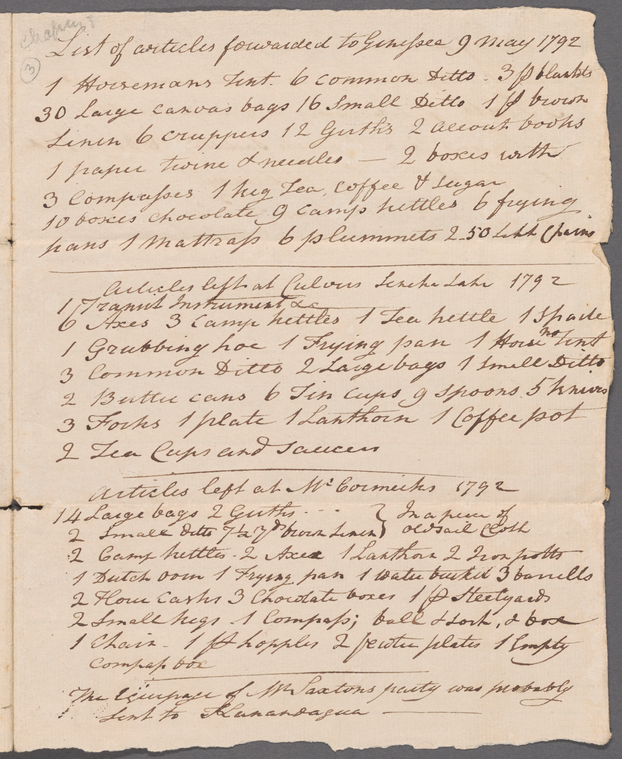 3
List of articles forwarded to Genesee 9 May 1792
1 Horsemans Tent. 6 common Ditto. 3 p blankts
30 Large canvas bags 16 Small Ditto 1 p brown
Linen 6 cruppers 12 Girths 2 books
1 paper twine & needles — 2 boxes with
3 Compasses 1 keg Tea, Coffee & Sugar
10 boxes Chocolate 9 Camp kettles 6 frying
pans 1 Mattrass 6 plummets 2.50 Link Chains
Articles left at Culvers Seneka Lake 1792
1 Transit Instrument &c
6 Axes 3 Camp kettles 1 Tea kettle 1 Spade
1 Grubbing hoe 1 Frying pan 1 Horsemns Tent
3 Common Ditto 2 Large bags 1 Small Ditto
2 Butter cans 6 Tin Cups 9 Spoons 5 knives
3 Forks 1 plate 1 Lanthorn 1 Coffee pot
2 Tea Cups and Saucers
Articles left at McCormicks 1792
14 Large bags 2 Girths } In a piece of
2 Small ditto 7½ yds brown Linen } old sail Cloth
2 Camp kettles 2 Axes 1 Lanthorn 2 Iron potts
1 Dutch oven 1 Frying pan 1 water bucket 3 barrells
2 Flour casks 3 Chocolate boxes 1 p Steelyards
2 Small kegs 1 Compass; ball & sock, & box
1 Chain 1 p hopples 2 pewter plates 1 Empty
Compass box
The Equipage of Mr Saxtons party was probably
sent to Kanandagua —